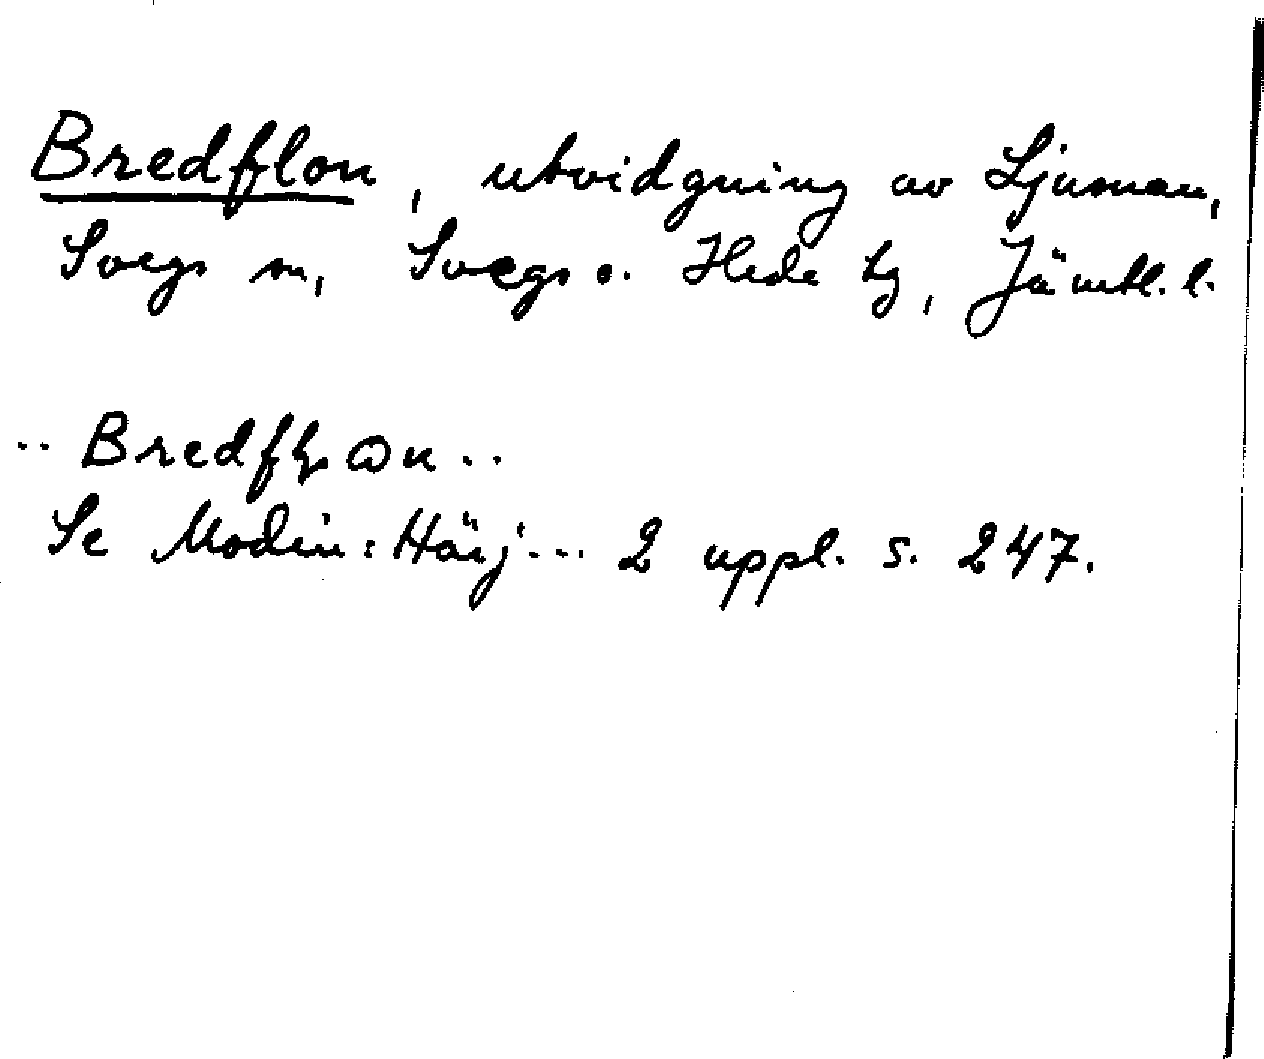 Bredflon, utvidgning av Ljusnan,
Svegs sn, Svegs o. Hede tg, Jämtl. l.
.. Bredfɭɷn ..
Se Modin: Härj... 2 uppl. s. 247.